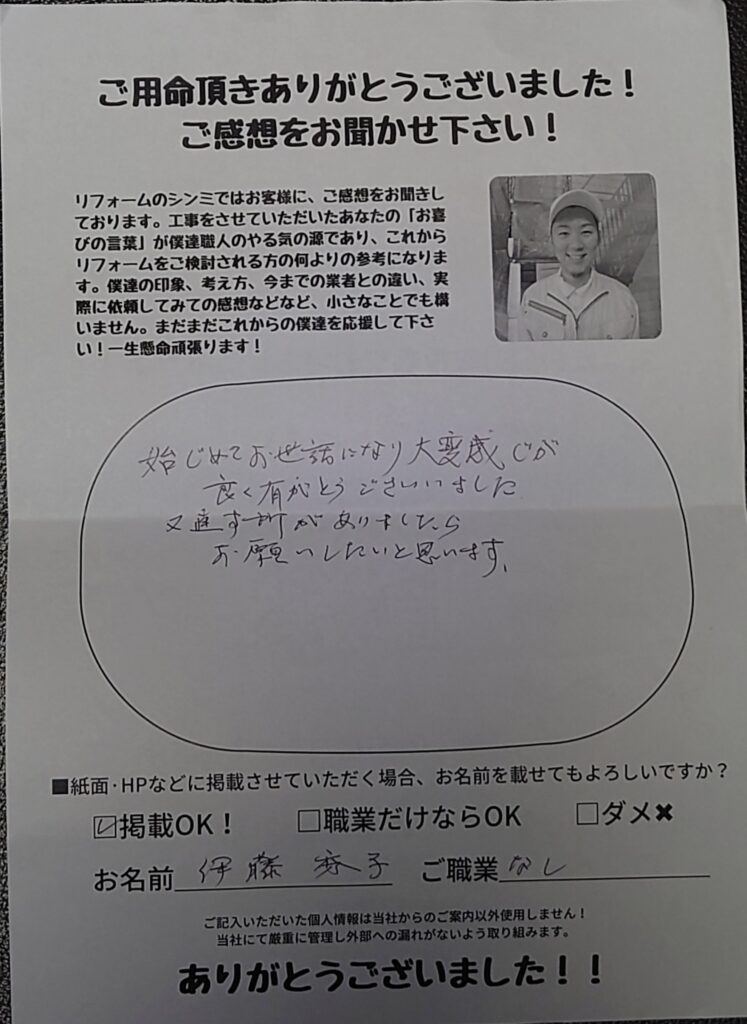 ご用命頂きありがとうございました！
ご感想をお聞かせ下さい！
リフォームのシンミではお客様に、ご感想をお聞きし
ております。工事をさせていただいたあなたの「お喜
びの言葉」が僕達職人のやる気の源であり、これから
リフォームをご検討される方の何よりの参考になりま
す。僕達の印象、考え方、今までの業者との違い、実
際に依頼してみての感想などなど、小さなことでも構
いません。まだまだこれからの僕達を応援して下さ
い！一生懸命頑張ります！
始じめてお世話になり大変感じが
良く有がとうございました
又直す所がありましたら
お願いしたいと思います。
■紙面・HPなどに掲載させていただく場合、お名前を載せてもよろしいですか？
☑掲載OK！ □職業だけならOK □ダメ✖
お名前 伊藤 子 ご職業 なし
ご記入いただいた個人情報は当社からのご案内以外使用しません！
当社にて厳重に管理し外部への漏れがないよう取り組みます。
ありがとうございました！！